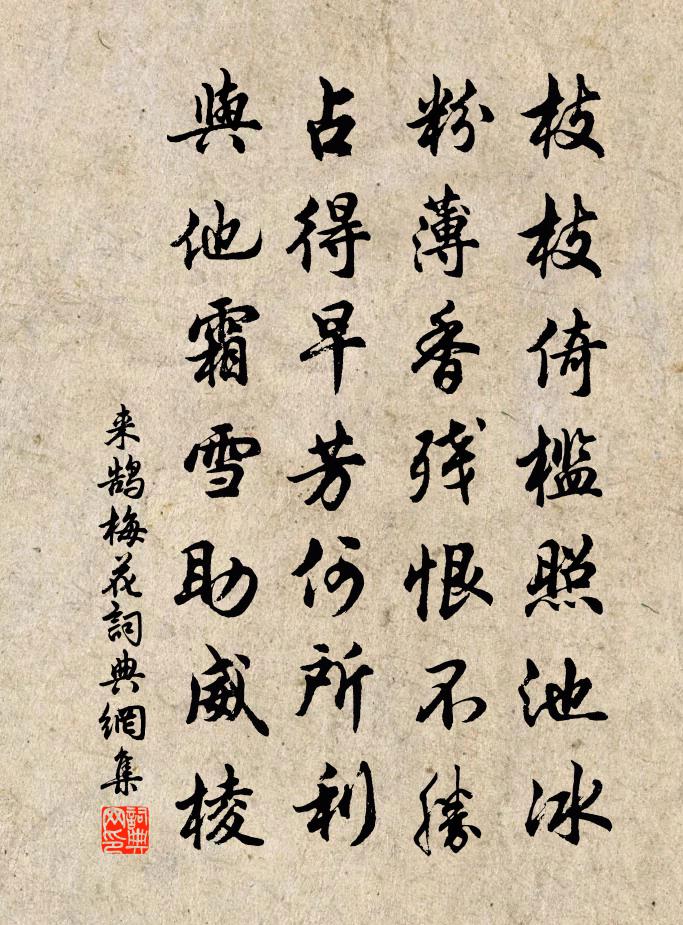 枝枝倚檻照池冰
粉薄香残恨不勝
占得早芳何所利
與他霜雪助威棱
来鹄梅花詞典網集
詞典網印